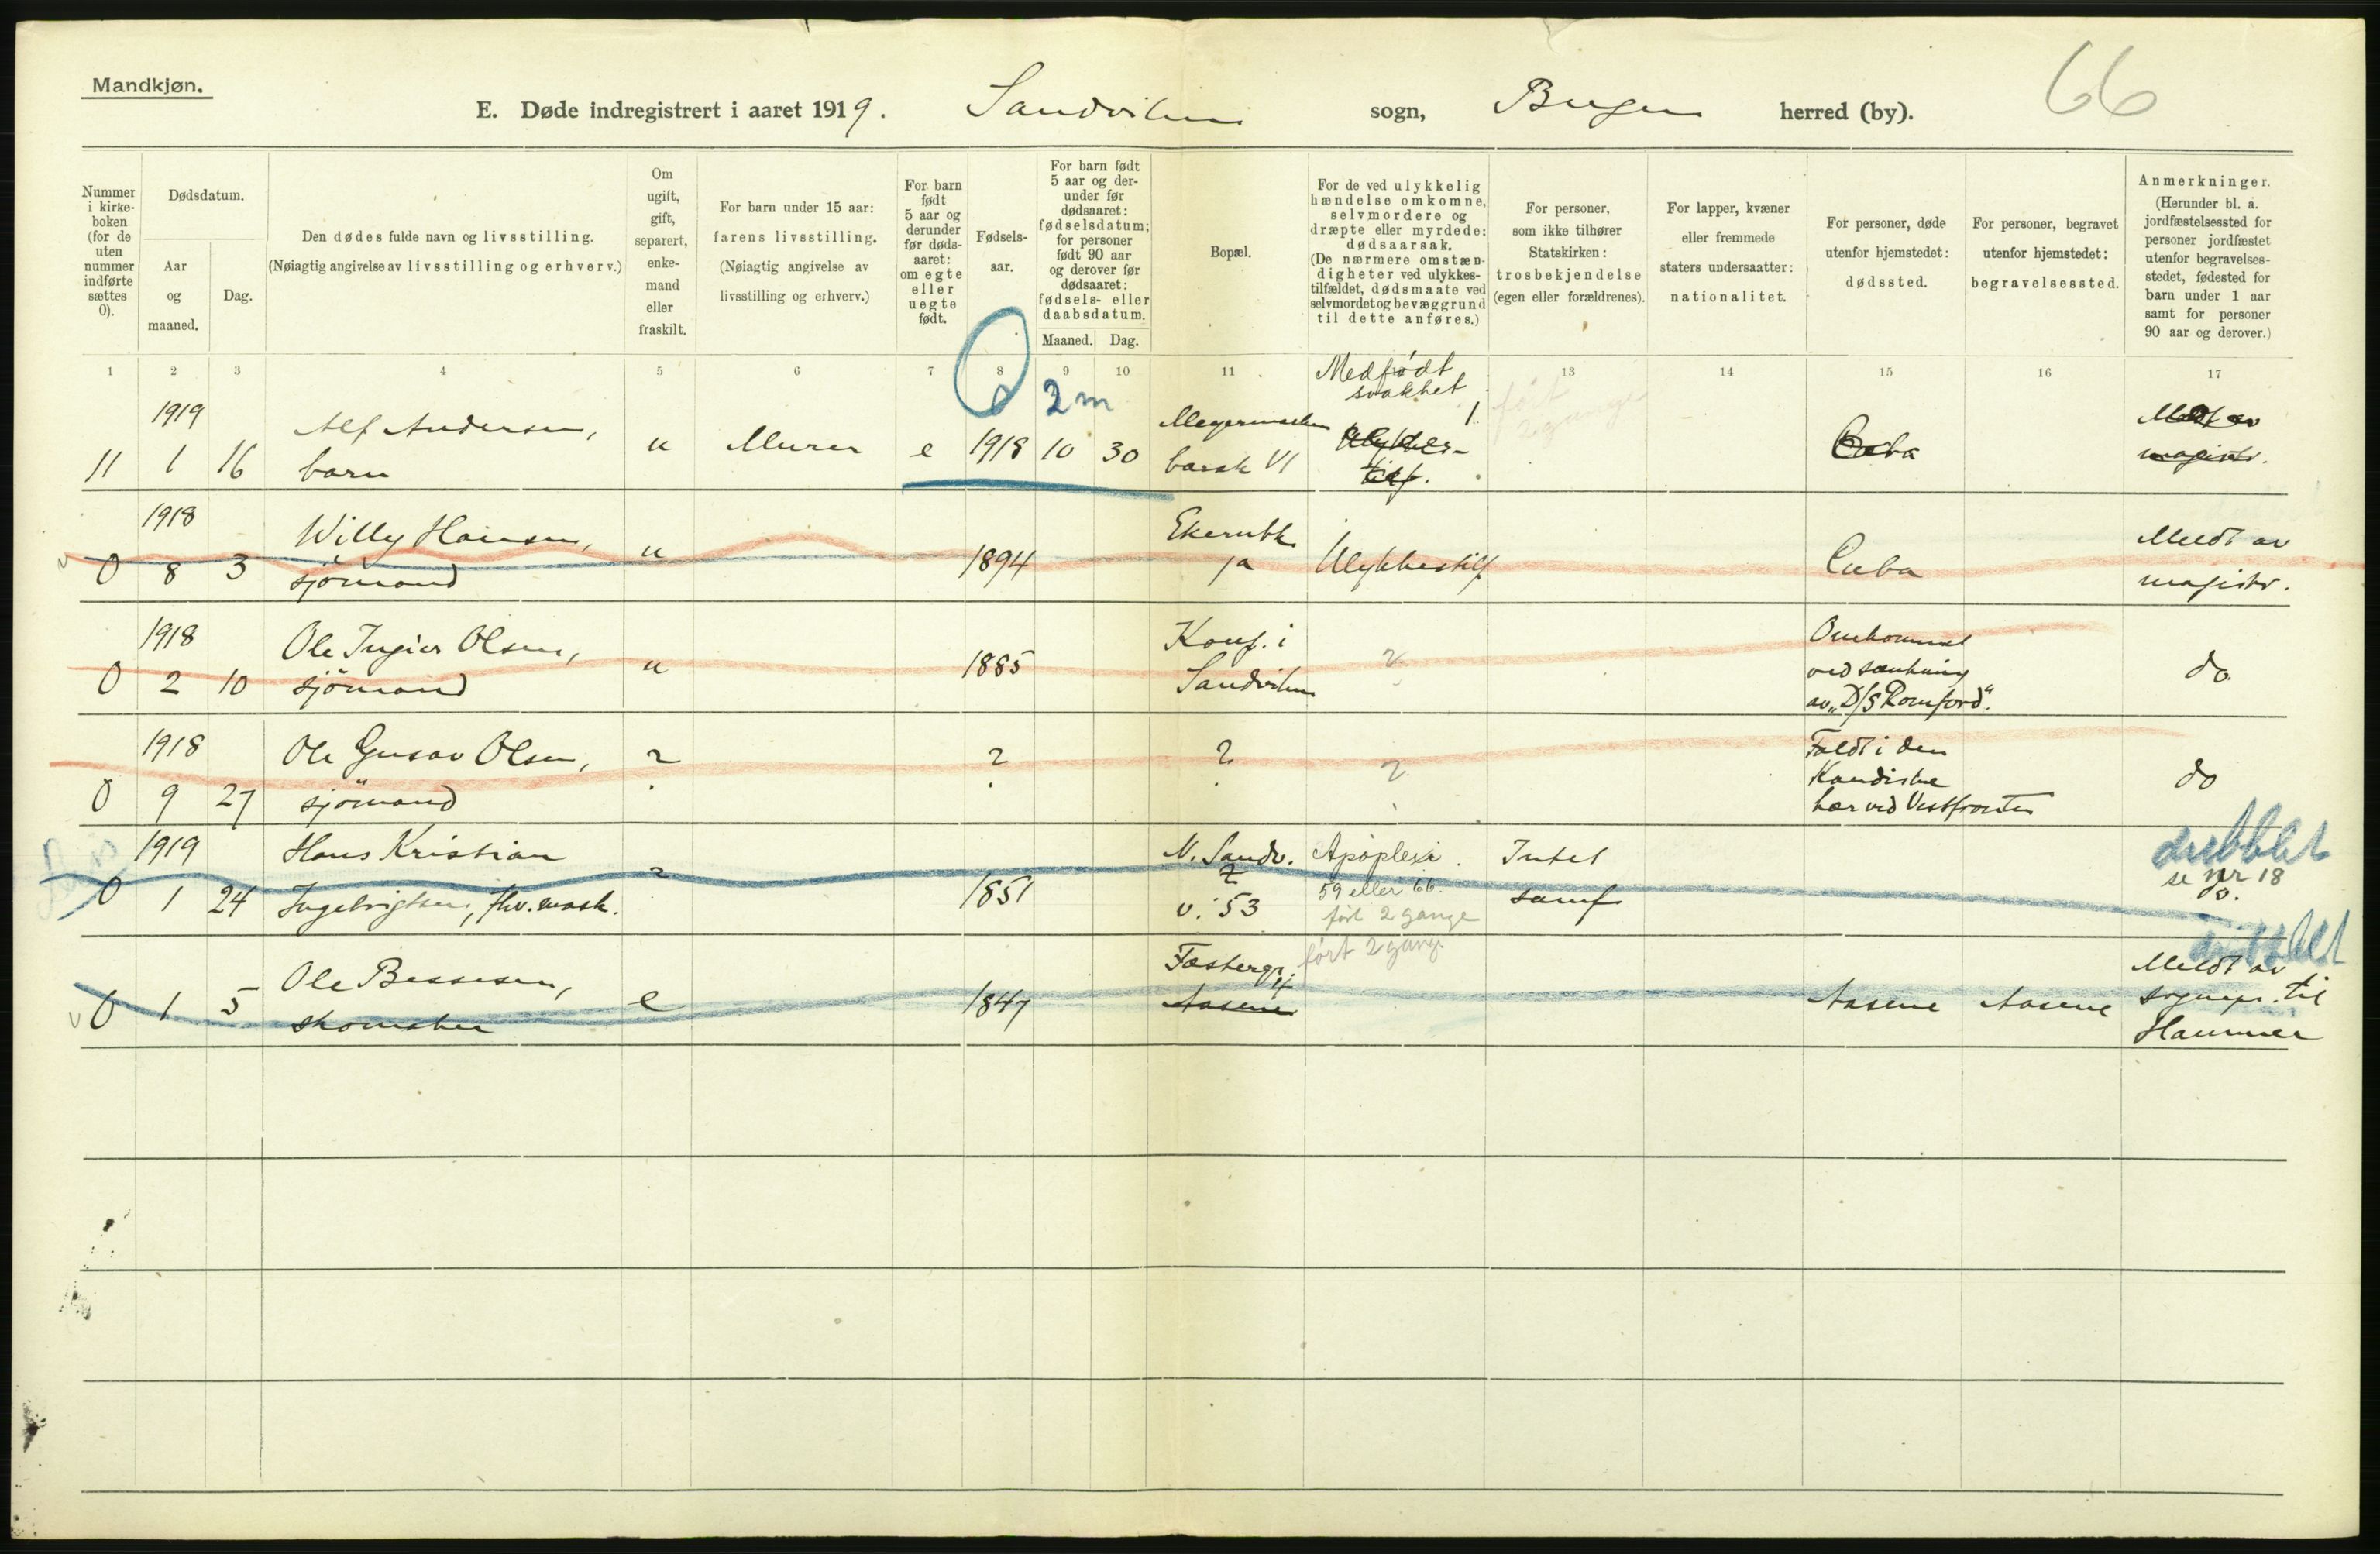 Mandkjøn.
E. Døde indregistrert i aaret 1919. Sandviken sogn, Bergen herred (by).
66
Nummer
i kirke-
boken
(for de
uten
nummer
indførte
sættes
0).
Dødsdatum.
Aar
og
maaned.
Dag.
Den dødes fulde navn og livsstilling.
(Nøiagtig angivelse av livsstilling og erhverv.)
Om
ugift,
gift,
separert,
enke-
mand
eller
fraskilt.
For barn under 15 aar:
farens livsstilling.
(Nøiagtig angivelse av
livsstilling og erhverv.)
For barn
født
5 aar og
derunder
før døds-
aaret:
om egte
eller
uegte
født.
Fødsels-
aar.
For barn født
5 aar og der-
under før
dødsaaret:
fødselsdatum;
for personer
født 90 aar
og derover før
dødsaaret:
fødsels- eller
daabsdatum.
Maaned.
Dag.
Bopæl.
For de ved ulykkelig
hændelse omkomne,
selvmordere og
dræpte eller myrdede:
dødsaarsak.
(De nærmere omstæn-
digheter ved ulykkes-
tilfældet, dødsmaate ved
selvmordet og bevæggrund
til dette anføres.)
For personer,
som ikke tilhører
Statskirken:
trosbekjendelse
(egen eller forældrenes).
For lapper, kvæner
eller fremmede
staters undersaatter:
nationalitet.
For personer, døde
utenfor hjemstedet:
dødssted.
For personer, begravet
utenfor hjemstedet:
begravelsessted.
Anmerkninger.
(Herunder bl. a.
jordfæstelsessted for
personer jordfæstet
utenfor begravelses-
stedet, fødested for
barn under 1 aar
samt for personer
90 aar og derover.)
1 2 3 4 5 6 7 8 9 10 11 13 14 15 16 17
2 m
Medfødt
svakhet
ført
2 gange
1919
11 1 16
Alf Andersen,
barn
u
Murer
e
1918 10 30
barak VI
1
Ulykkes-
tilf.
Cuba
Meldt av
magistr.
1918
0 8 3
Willy Hansen,
sjömand
u
1894
1a
Ulykkestilf
Cuba
Meldt av
magistr.
1918
0 2 10
Ole Ingier Olsen,
sjömand
u
1885
Konf. i
Sandviken
?
Omkommet
ved sænkning
av „D/S Romford".
do
1918
0 9 27
Ole Gusav Olsen,
sjömand
?
?
?
?
Faldt i den
Kandiske
hær ved Vestfronten
do
1919
0 1 24
Hans Kristian
Ingebrigtsen, fhv. mask.
?
1851
N. Sandv.
2
v. 53
Apoplexi.
59 eller 66.
ført 2 gange
Intet
samf
dubblet
se nr 18
do.
0 1 5
Ole Bessesen,
skomaker
e
1847
4
Aasene
ført 2 gang.
Aasene
Aasene
dubblet
Meldt av
sognepr. til
Hammer